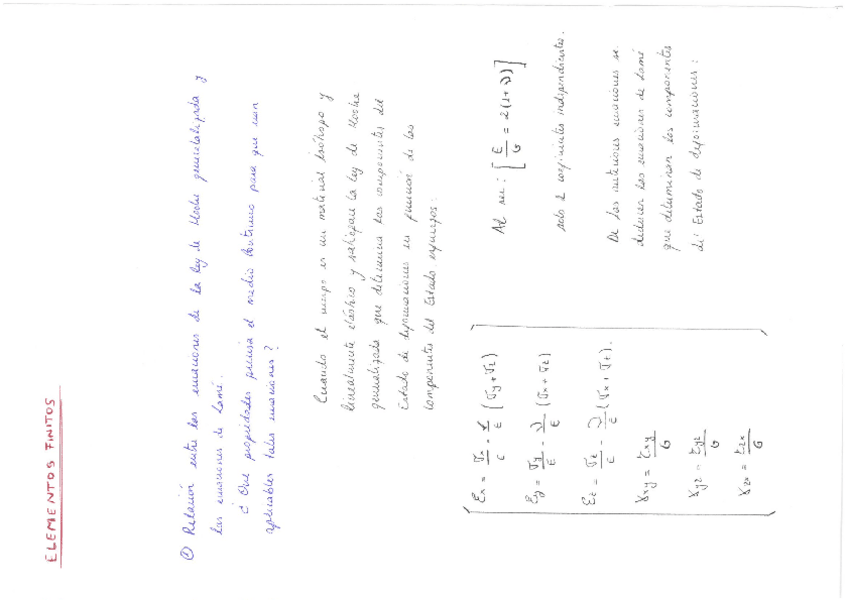 ELEMENTOS FINITOS
① Relación entre las ecuaciones de la Ley de Hooke generalizada y
las ecuaciones de Lamé.
¿ Que propiedades precisa el medio continuo para que sean
aplicables tales ecuaciones ?
Cuando el cuerpo es un material isótropo y
linealmente elástico y satisfacen la Ley de Hooke
generalizada que determina las componentes del
Estado de deformaciones en función de las
componentes del Estado esfuerzos:
εx = σx/E - ν/E (σy + σz)
εy = σy/E - ν/E (σx + σz)
εz = σz/E - ν/E (σx + σy).
γxy = τxy/G
γyz = τyz/G
γzx = τzx/G
Al ser : [ E/G = 2(1+ν) ]
solo 2 coeficientes independientes.
De las anteriores ecuaciones se
deducen las ecuaciones de Lamé
que determinan las componentes
del Estado de deformaciones :